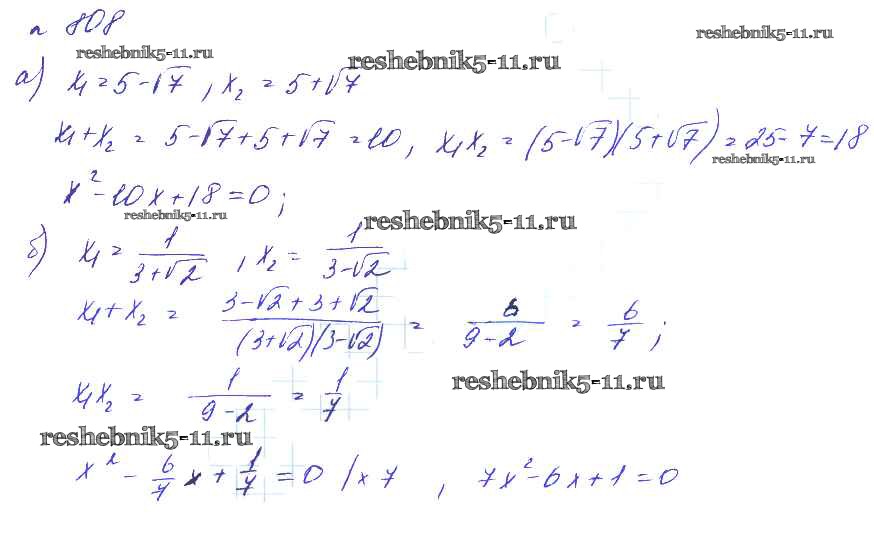 n 808
reshebnik5-11.ru
reshebnik5-11.ru
reshebnik5-11.ru
а) x₁ = 5 - √7, x₂ = 5 + √7
x₁ + x₂ = 5 - √7 + 5 + √7 = 10, x₁x₂ = (5 - √7)(5 + √7) = 25 - 7 = 18
reshebnik5-11.ru
x² - 10x + 18 = 0;
reshebnik5-11.ru
reshebnik5-11.ru
б) x₁ = 1/(3 + √2), x₂ = 1/(3 - √2)
x₁ + x₂ = (3 - √2 + 3 + √2)/((3 + √2)(3 - √2)) = 6/(9 - 2) = 6/7;
reshebnik5-11.ru
x₁x₂ = 1/(9 - 2) = 1/7
reshebnik5-11.ru
x² - 6/7 x + 1/7 = 0 /× 7, 7x² - 6x + 1 = 0